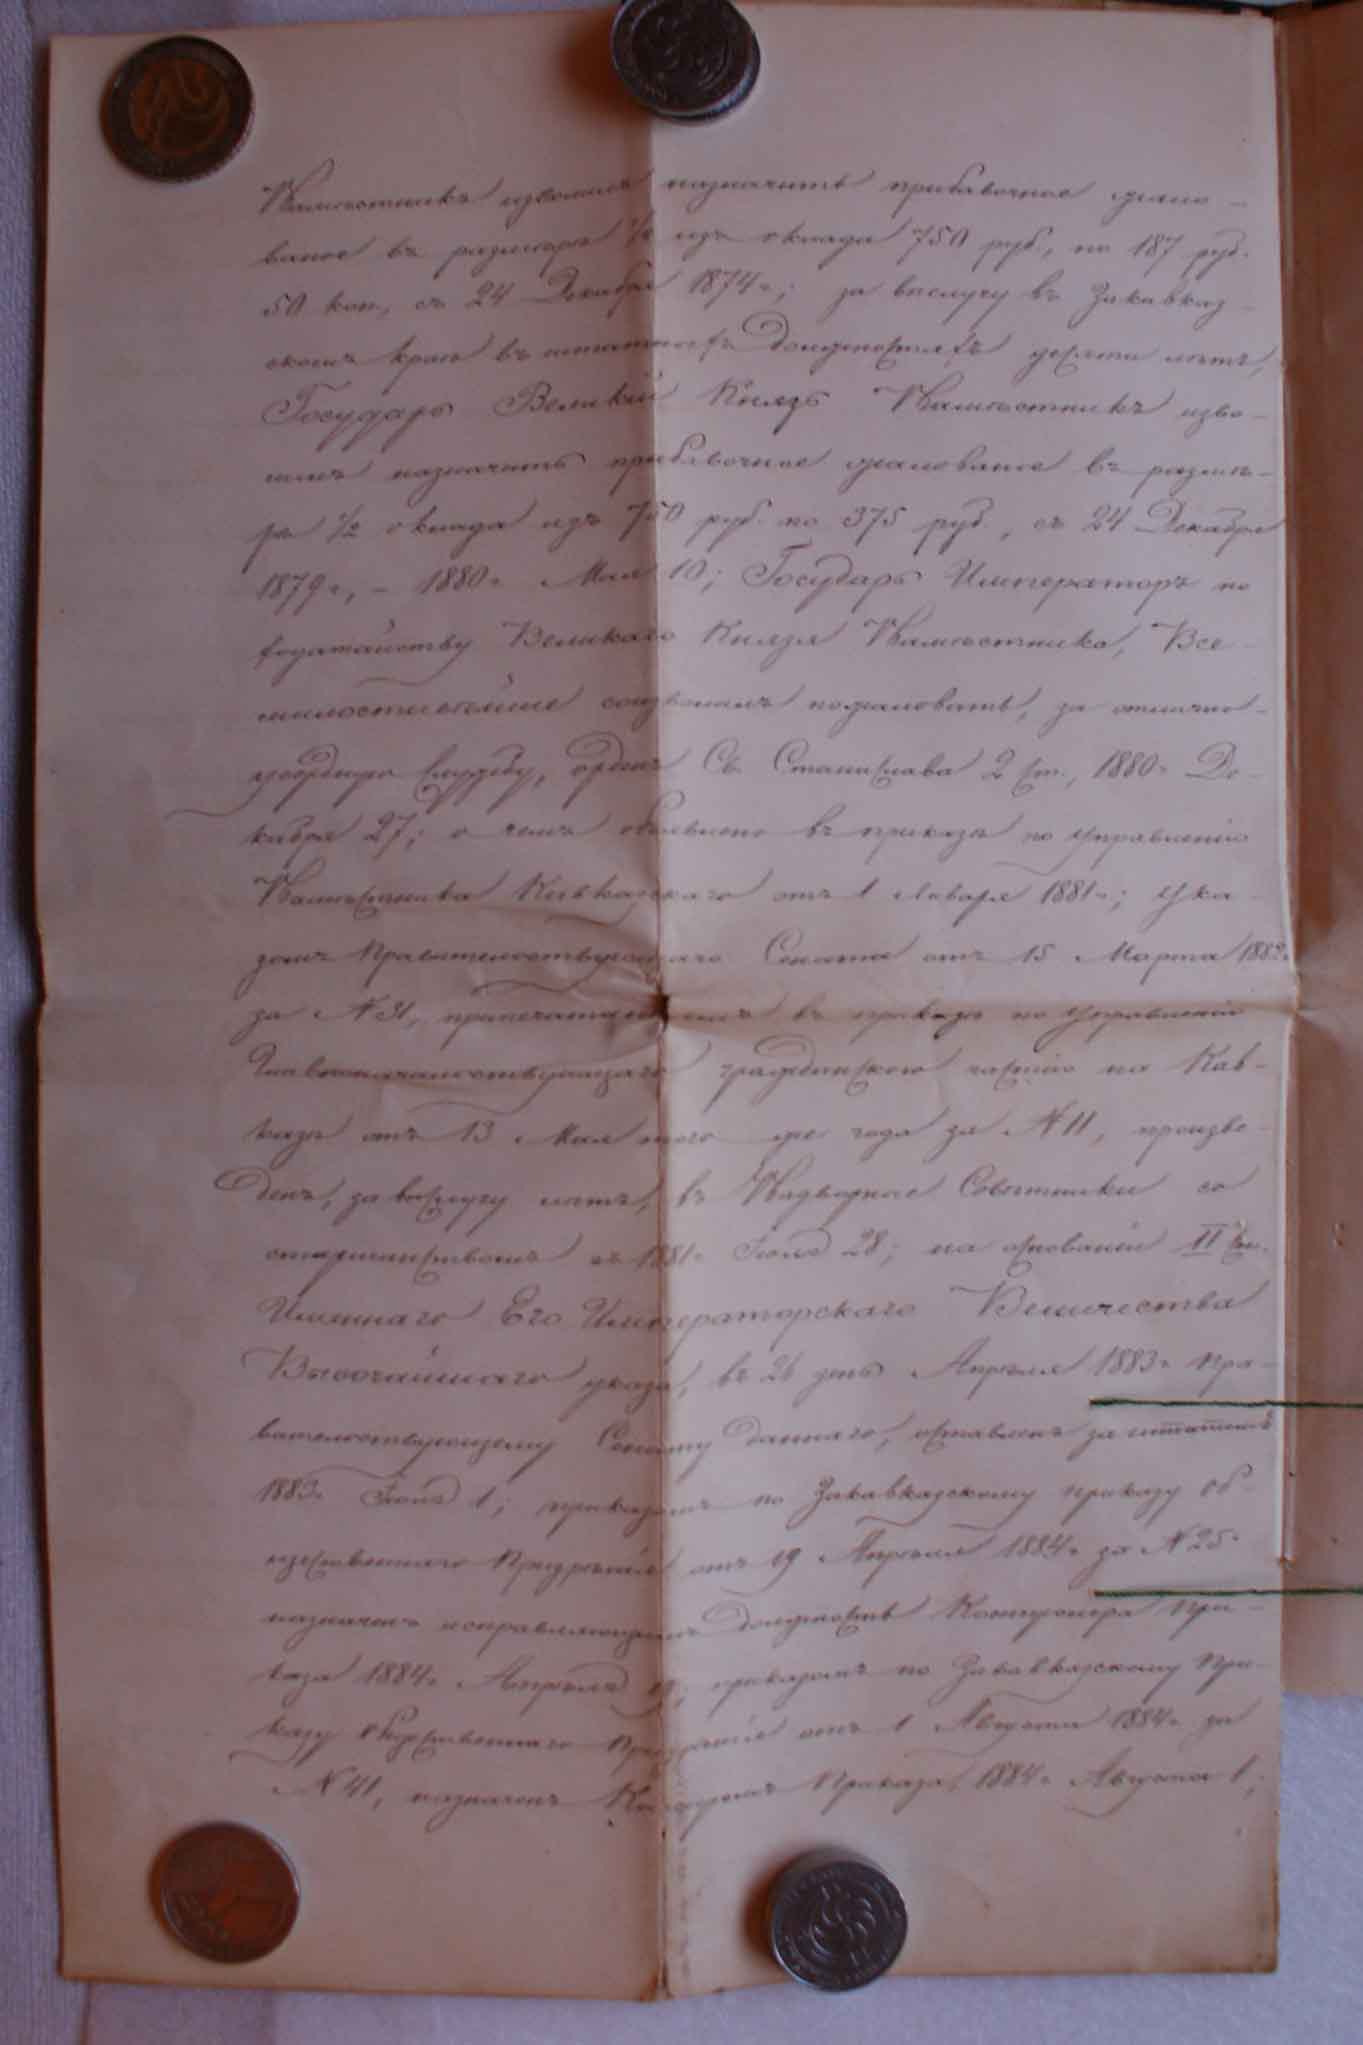 Намѣстникъ изволилъ назначить прибавочное жало-
ванье въ размѣрѣ ¼ изъ оклада 750 руб., по 187 руб.
50 коп., съ 24 Декабря 1874 г.; за выслугу въ Закавказ-
скомъ краѣ въ штатныхъ должностяхъ десяти лѣтъ,
Государь Великій Князь Намѣстникъ изво-
лилъ назначить прибавочное жалованье въ размѣ-
рѣ ½ оклада изъ 750 руб. по 375 руб., съ 24 Декабря
1879 г., – 1880 г. Мая 10; Государь Императоръ по
ходатайству Великаго Князя Намѣстника, Все-
милостивѣйше соизволилъ пожаловать, за отлично-
усердную службу, орденъ Св. Станислава 2 ст., 1880 г. Де-
кабря 27; о чемъ объявлено въ приказѣ по Управленію
Намѣстника Кавказскаго отъ 1 Января 1881 г.; Ука-
зомъ Правительствующаго Сената отъ 15 Марта 1882 г.
за № 31, припечатаннымъ въ приказѣ по Управленію
Главноначальствующаго гражданскою частію на Кав-
казѣ отъ 13 Мая того же года за № 11, произве-
денъ, за выслугу лѣтъ, въ Надворные Совѣтники со
старшинствомъ съ 1881 г. Іюля 28; на основаніи II ст.
Именнаго Его Императорскаго Величества
Высочайшаго указа, въ 26 день Апрѣля 1883 г. Пра-
вительствующему Сенату даннаго, оставленъ за штатомъ
1883 г. Іюля 1; приказомъ по Закавказскому приказу об-
щественнаго Призрѣнія отъ 19 Апрѣля 1884 г. за № 25.
назначенъ исправляющимъ должность Контролера При-
каза 1884 г. Апрѣля 19; приказомъ по Закавказскому При-
казу Общественнаго Призрѣнія отъ 1 Августа 1884 г. за
№ 41, назначенъ Приказа, 1884 г. Августа 1;